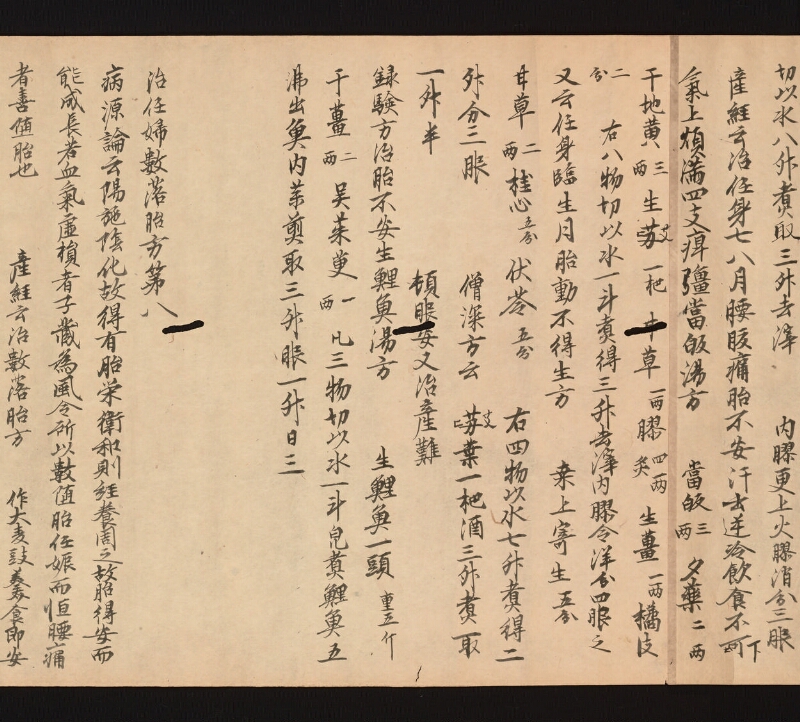 切以水八升煮取三升去滓 内膠更上火膠消分三服
產經云治任身七八月腰腹痛胎不安汗出逆冷飲食不下
氣上煩滿四支痺彊當皈湯方 當皈三兩 夕藥二兩
干地黄三兩 生艾一杷 甘草一兩 膠四兩炙 生薑一兩 橘皮
二分 右八物切以水一斗煮得三升去滓内膠令洋分四服之
又云任身臨生月胎動不得生方 桒上寄生五分
甘草二兩 桂心五分 伏苓五分 右四物以水七升煮得二
升分三服 僧深方云 艾葉一杷酒三升煮取
一升半 頓服安又治產難
録驗方治胎不安生鯉魚湯方 生鯉魚一頭重五斤
干薑二兩 吴茱萸一兩 凡三物切以水一斗皃煮鯉魚五
沸出魚内藥煎取三升服一升日三
治任婦數落胎方第八
病源論云陽施陰化故得有胎荣衛和則經養周之故胎得安而
能成長若血氣虚損者子藏為風冷所以數値胎任娠而恒腰痛
者善値胎也 產經云治數落胎方 作大麦豉羹食即安